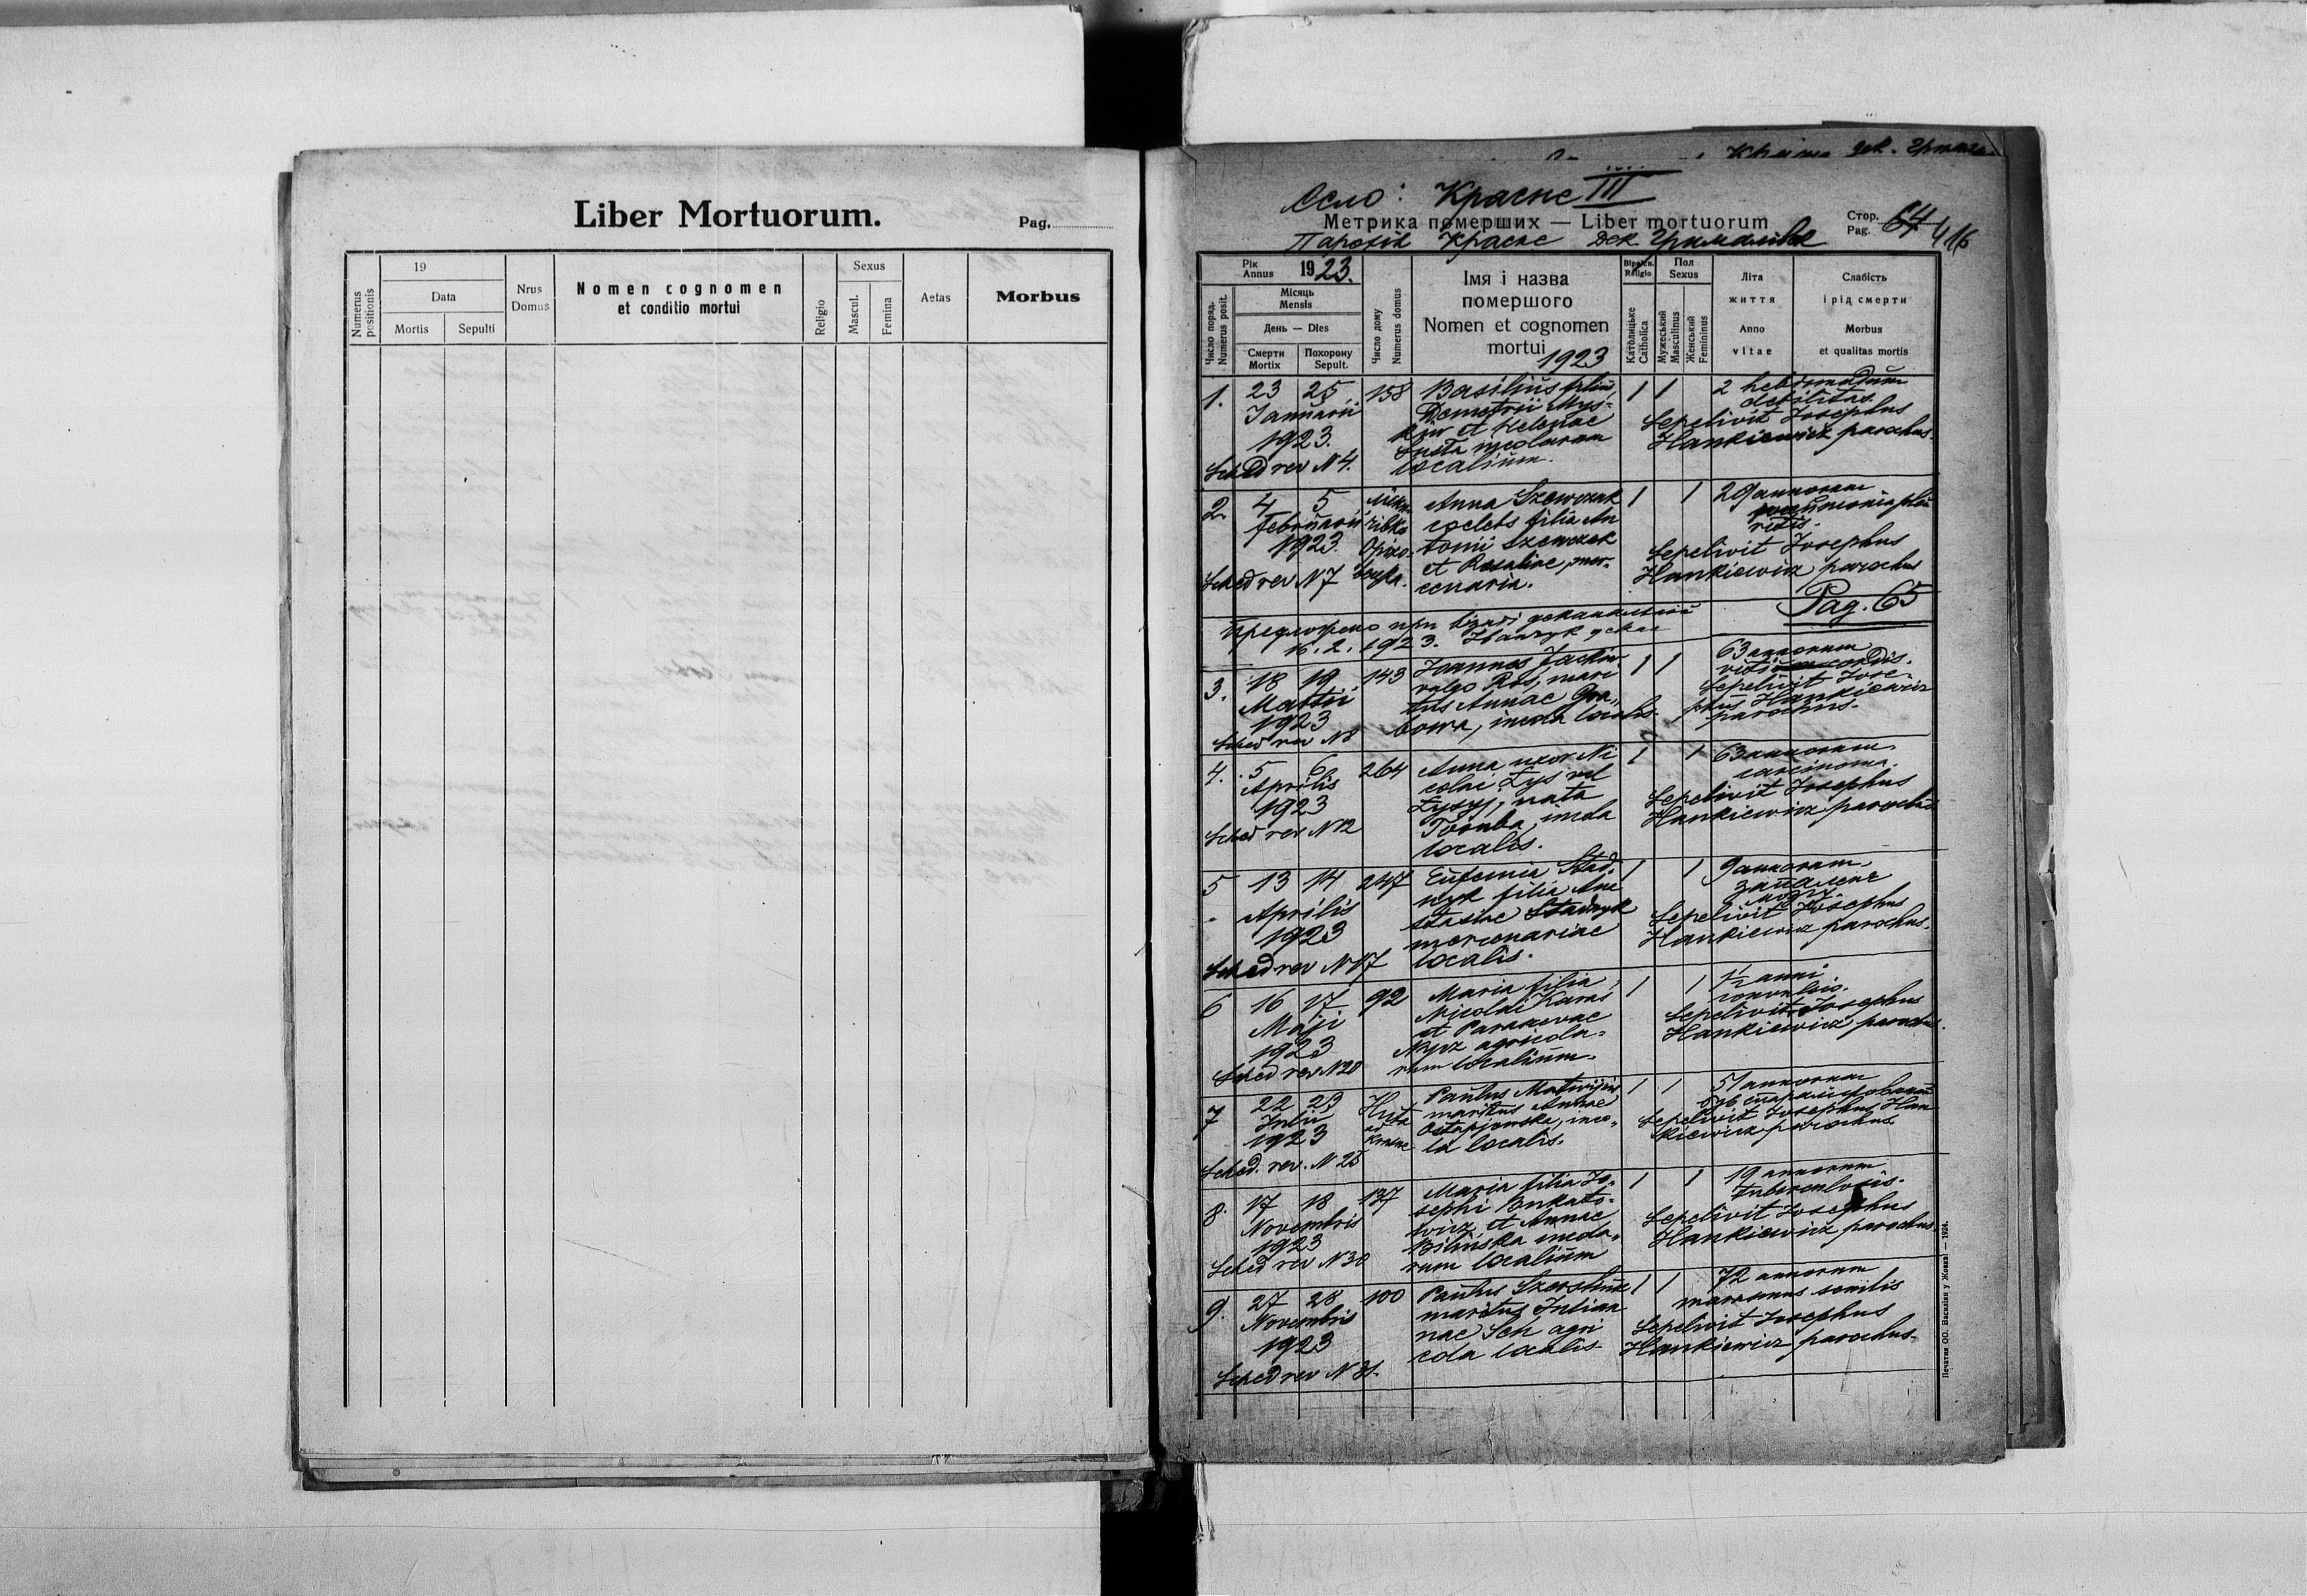 Liber Mortuorum.
Pag.
Numerus positionis
19
Data
Mortis
Sepulti
Nrus Domus
Nomen cognomen
et conditio mortui
Religio
Sexus
Mascul.
Femina
Aetas
Morbus
Село: Красне III
Метрика померших — Liber mortuorum
Стор. Pag. 64
416
Парохія Красне Дек. Грималів
Число поряд. Numerus posit.
Рік Annus 1923.
Місяць Mensis
День — Dies
Смерти Mortix
Похорону Sepult.
Число дому Numerus domus
Імя і назва
помершого
Nomen et cognomen
mortui
1923
Віроісп. Religio
Католицьке Catholica
Пол Sexus
Мужеський Masculinus
Женський Femininus
Літа
життя
Anno
vitae
Слабість
і рід смерти
Morbus
et qualitas mortis
1. 23 25 158 Basilius filius 1 1 2 hebdomadum
Januarii Demetrii Mys= debilitas.
1923. kiw et Helenae Sepelivit Josephus
incolarum Hankiewicz parochus.
Sched rev N 4. localium.
2. 4 5 Anna Szewczuk 1 1 29 annorum
Februarii coelebs filia An
1923. tonii Szewczuk Sepelivit Josephus
Sched rev N 7 et Rosaliae, mer- Hankiewicz parochus
cenaria.
Pag. 65
Предложено при візиті деканальній
16.2.1923.
3. 18 19 143 Joannes Jackiw 1 1 63 annorum
Martii vulgo Ros, mari cordis.
1923 tus Annae Gra„ Sepelivit Jose-
Sched rev N 8 bowa, incola localis. phus Hankiewicz
parochus.
4. 5 6 264 Anna uxor Ni 1 1 63 annorum
Aprilis colai Łys vel carcinoma.
1923 Łysyj, nata Sepelivit Josephus
Sched rev N 12 incola Hankiewicz parochus
localis.
5 13 14 247 Eufemia Stad 1 1 9 annorum
Aprilis nyk filia Ana запалене мозгу.
1923 stasiae Stadnyk Sepelivit Josephus
mercenariae Hankiewicz parochus.
Sched rev N 17 localis.
6 16 17 92 Maria filia 1 1 1½ anni
Maji Nicolai Karas convulsio.
1923 et Parascevae Sepelivit Josephus
Sched rev N 20 agricola= Hankiewicz parochus.
rum localium.
7 22 23 Huta Paulus Matwijciw 1 1 51 annorum
Julii ad maritus Annae
1923 Krasne Ostapjowska, inco„ Sepelivit Josephus Han
Sched. rev. N 25 la localis. kiewicz parochus
8. 17 18 137 Maria filia Jo- 1 1 19 annorum
Novembris sephi Bukato- tuberculosis.
1923 wicz et Annae Sepelivit Josephus
Sched rev N 30 Bilińska incola„ Hankiewicz parochus.
rum localium
9. 27 28 100 Paulus 1 1 72 annorum
Novembris maritus Julian marasmus senilis
1923 nae Sch agri Sepelivit Josephus
cola localis. Hankiewicz parochus.
Sched rev N 31.
Печатня ОО. Василіян у Жовкві — 1924.